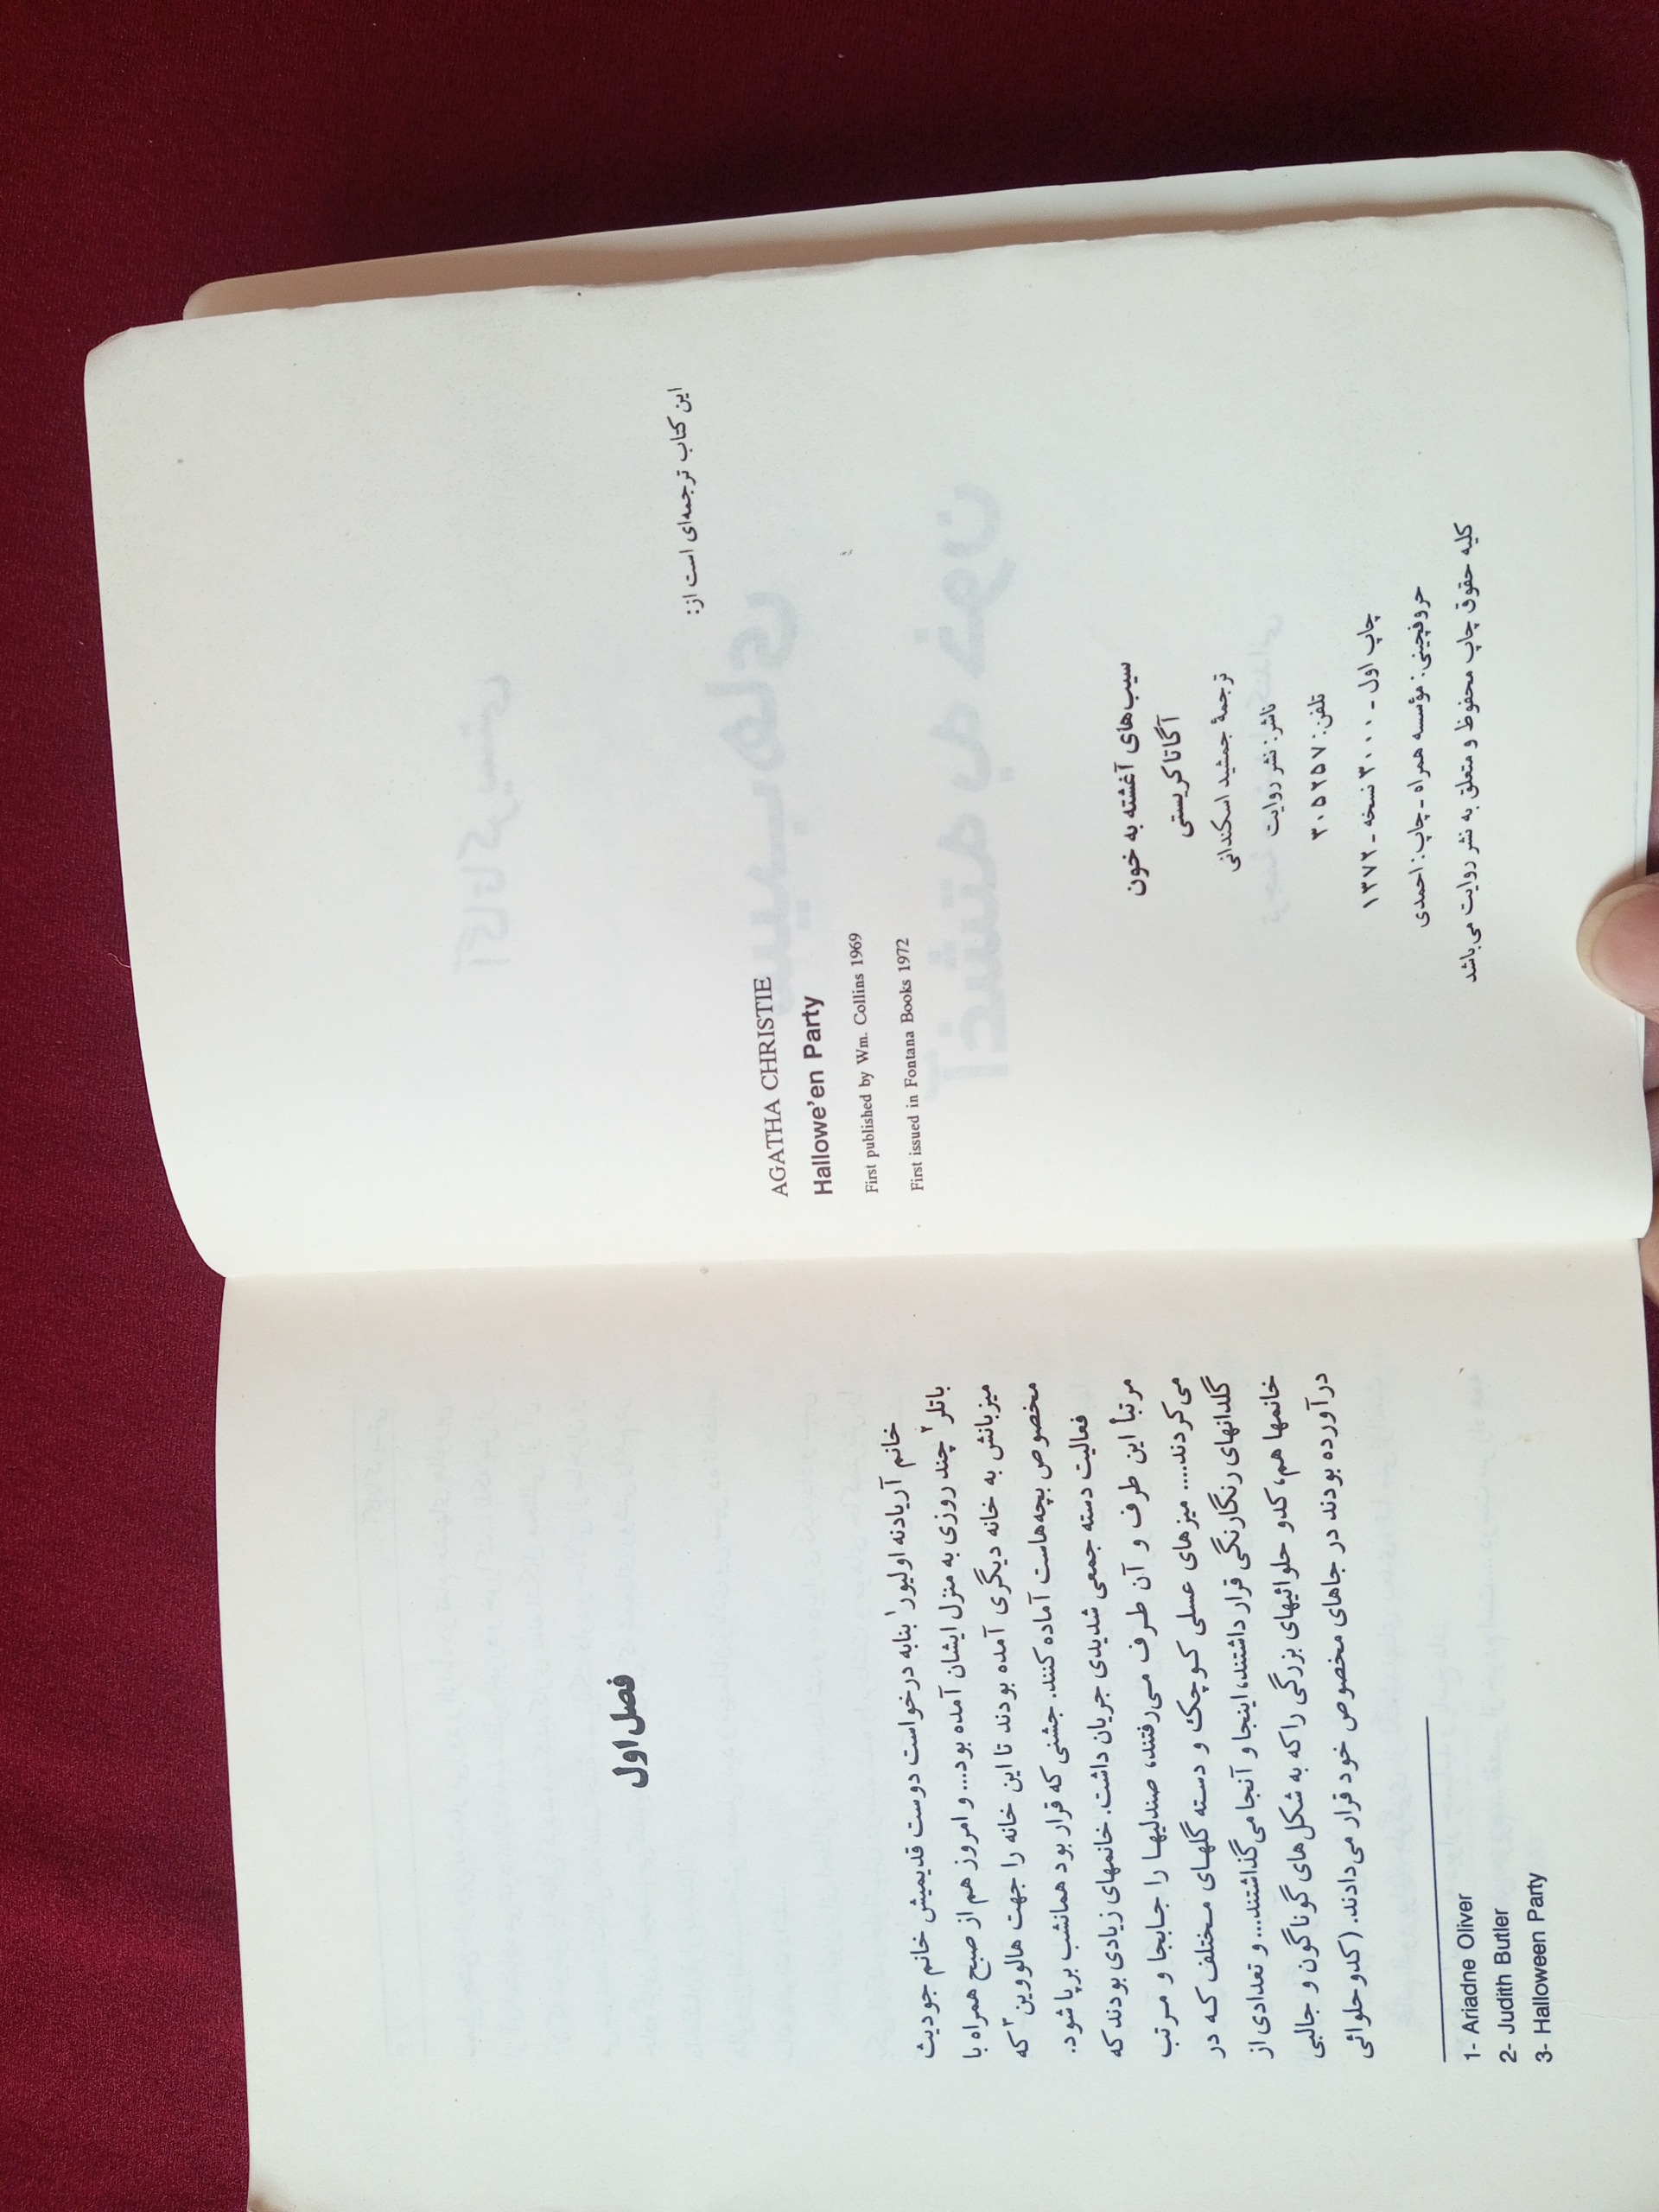 این کتاب ترجمه‌ای است از:
AGATHA CHRISTIE
Hallowe'en Party
First published by Wm. Collins 1969
First issued in Fontana Books 1972
سیب‌های آغشته به خون
آگاتا کریستی
ترجمهٔ جمشید اسکندانی
ناشر: نشر روایت
تلفن: ۳۰۵۲۵۷
چاپ اول - ۳۰۰۰ نسخه - ۱۳۷۲
حروفچینی: مؤسسه همراه - چاپ: احمدی
کلیه حقوق چاپ محفوظ و متعلق به نشر روایت می‌باشد
فصل اول
خانم آریادنه اولیور۱ بنابه درخواست دوست قدیمیش خانم جودیث
باتلر۲ چند روزی به منزل ایشان آمده بود... و امروز هم از صبح همراه با
میزبانش به خانه دیگری آمده بودند تا این خانه را جهت هالووین۳ که
مخصوص بچه‌هاست آماده کنند. جشنی که قرار بود همانشب برپا شود.
فعالیت دسته جمعی شدیدی جریان داشت. خانمهای زیادی بودند که
مرتباً این طرف و آن طرف می‌رفتند، صندلیها را جابجا و مرتب
می‌کردند.... میزهای عسلی کوچک و دسته گلهای مختلف که در
گلدانهای رنگارنگی قرار داشتند، اینجا و آنجا می‌گذاشتند... و تعدادی از
خانمها هم، کدو حلوائیهای بزرگی را که به شکل‌های گوناگون و جالبی
درآورده بودند در جاهای مخصوص خود قرار می‌دادند. (کدو حلوائی
1- Ariadne Oliver
2- Judith Butler
3- Halloween Party